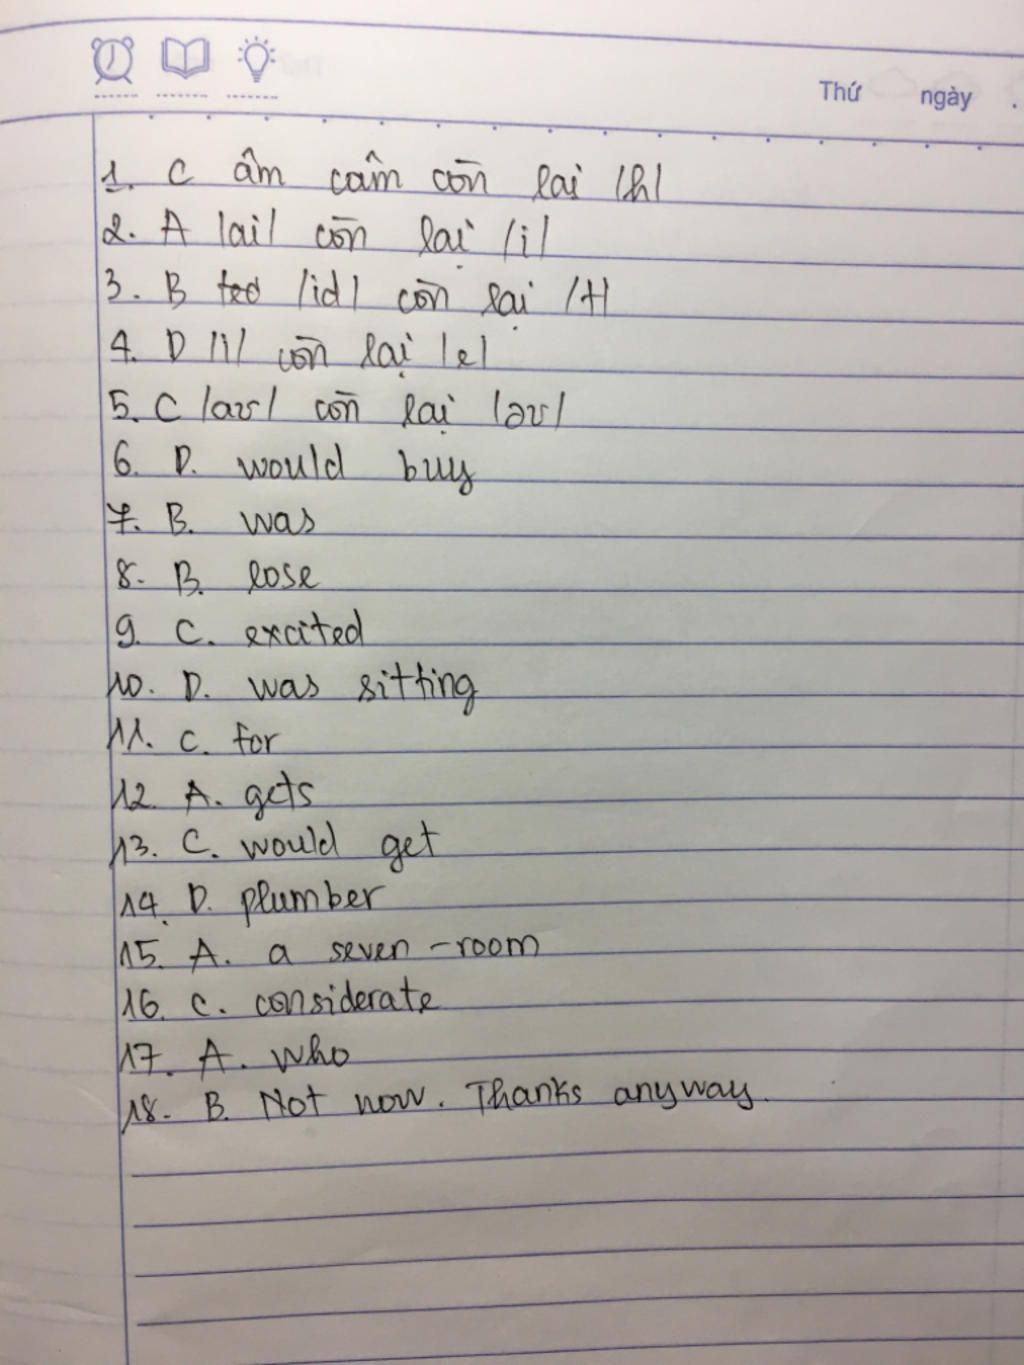 Thứ ngày .
1. C âm câm còn lại /h/
2. A /ai/ còn lại /i/
3. B ted /id/ còn lại /t/
4. D /i/ còn lại /e/
5. C /aʊ/ còn lại /əʊ/
6. D. would buy
7. B. was
8. B. lose
9. C. excited
10. D. was sitting
11. C. for
12. A. gets
13. C. would get
14. D. plumber
15. A. a seven-room
16. C. considerate
17. A. who
18. B. Not now. Thanks anyway.